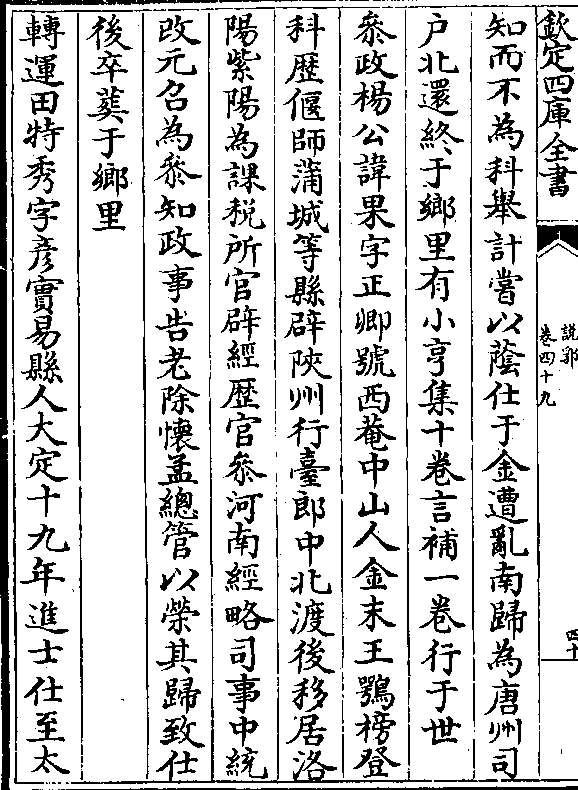 欽定四庫全書
說郛
卷四十九
四十
知而不為科舉計嘗以蔭仕于金遭亂南歸為唐州司
户北還終于鄉里有小亨集十卷言補一卷行于世
叅政楊公諱果字正卿號西菴中山人金末王鶚榜登
科歴偃師蒲城等縣辟陜州行臺郎中北渡後移居洛
陽紫陽為課税所官辟經歴官叅河南經略司事中統
改元召為叅知政事告老除懷孟總管以榮其歸致仕
後卒葬于鄉里
轉運田特秀字彦實易縣人大定十九年進士仕至太